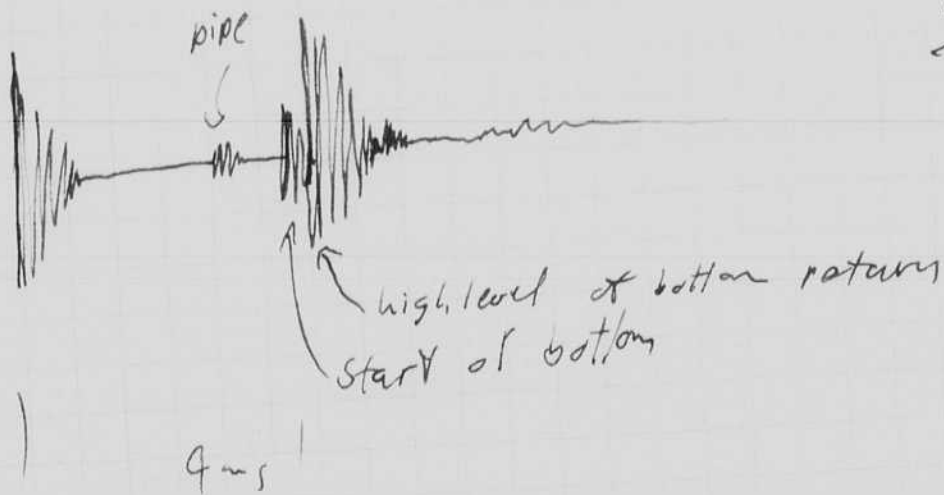 pipe
high level of bottom return
start of bottom
4 ms